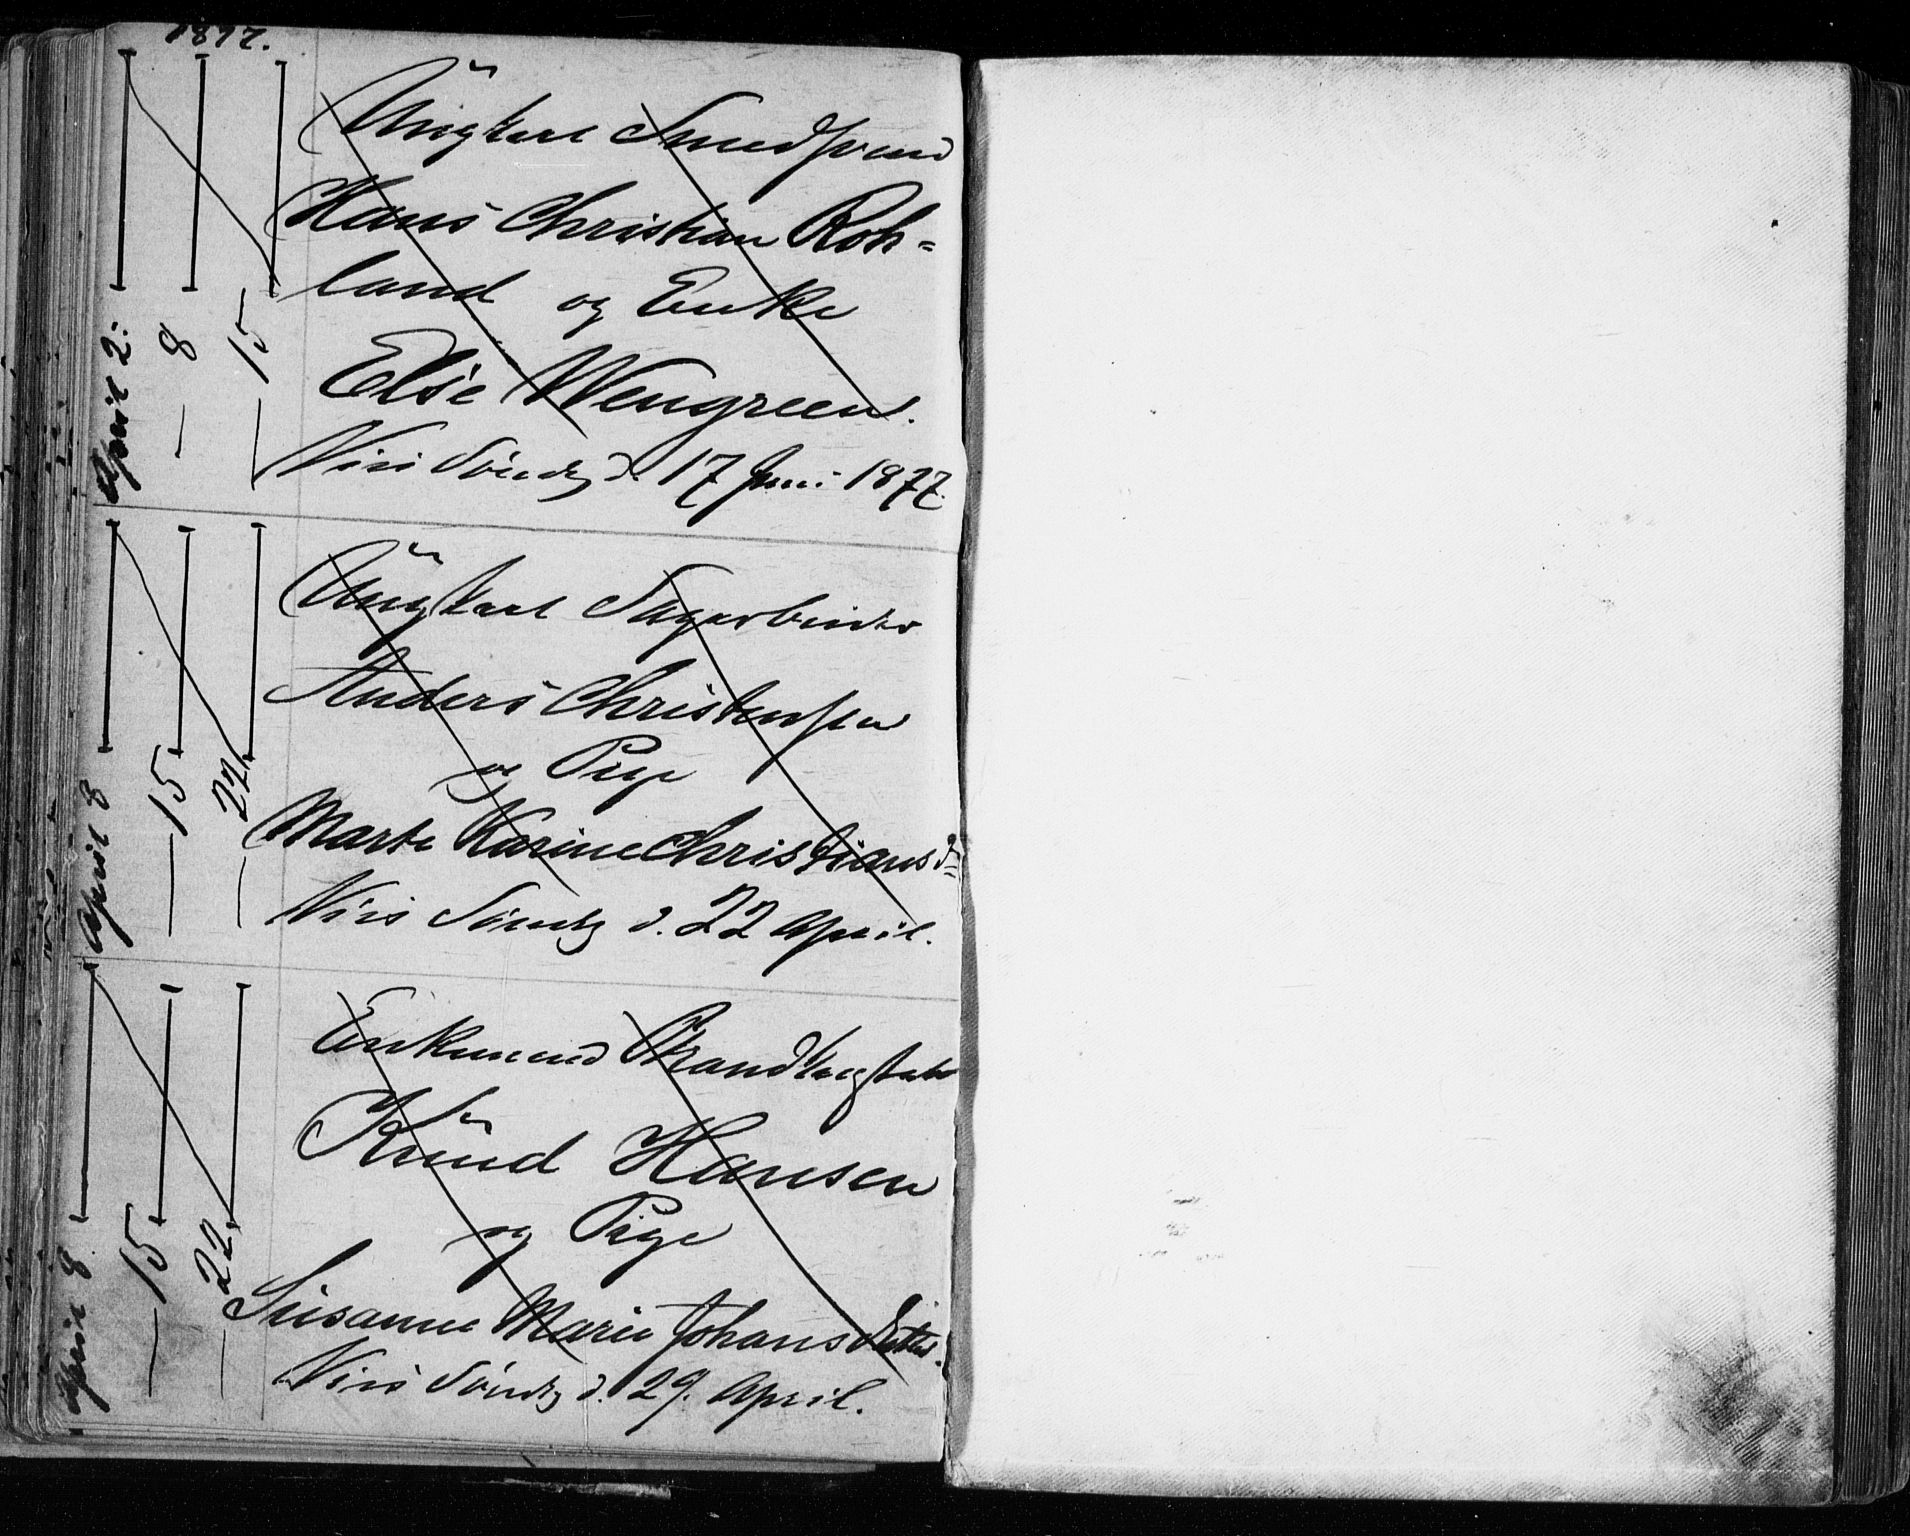 1877.
April 2.
— 8
— 15
Ungkarl Smedsvend
Hans Christian Roh=
land og Enke
Else Wengreen.
Viis Søndag d. 17 Juni 1877.
April 8
— 15
— 22
Ungkarl Sagarbeider
Anders Christensen
og Pige
Marte Karine Christiansd=
Viis Søndag d. 22 April.
April 8
— 15
— 22
Enkemand
Knud Hansen
og Pige
Susanne Marie Johansdatter.
Viis Søndag d. 29. April.